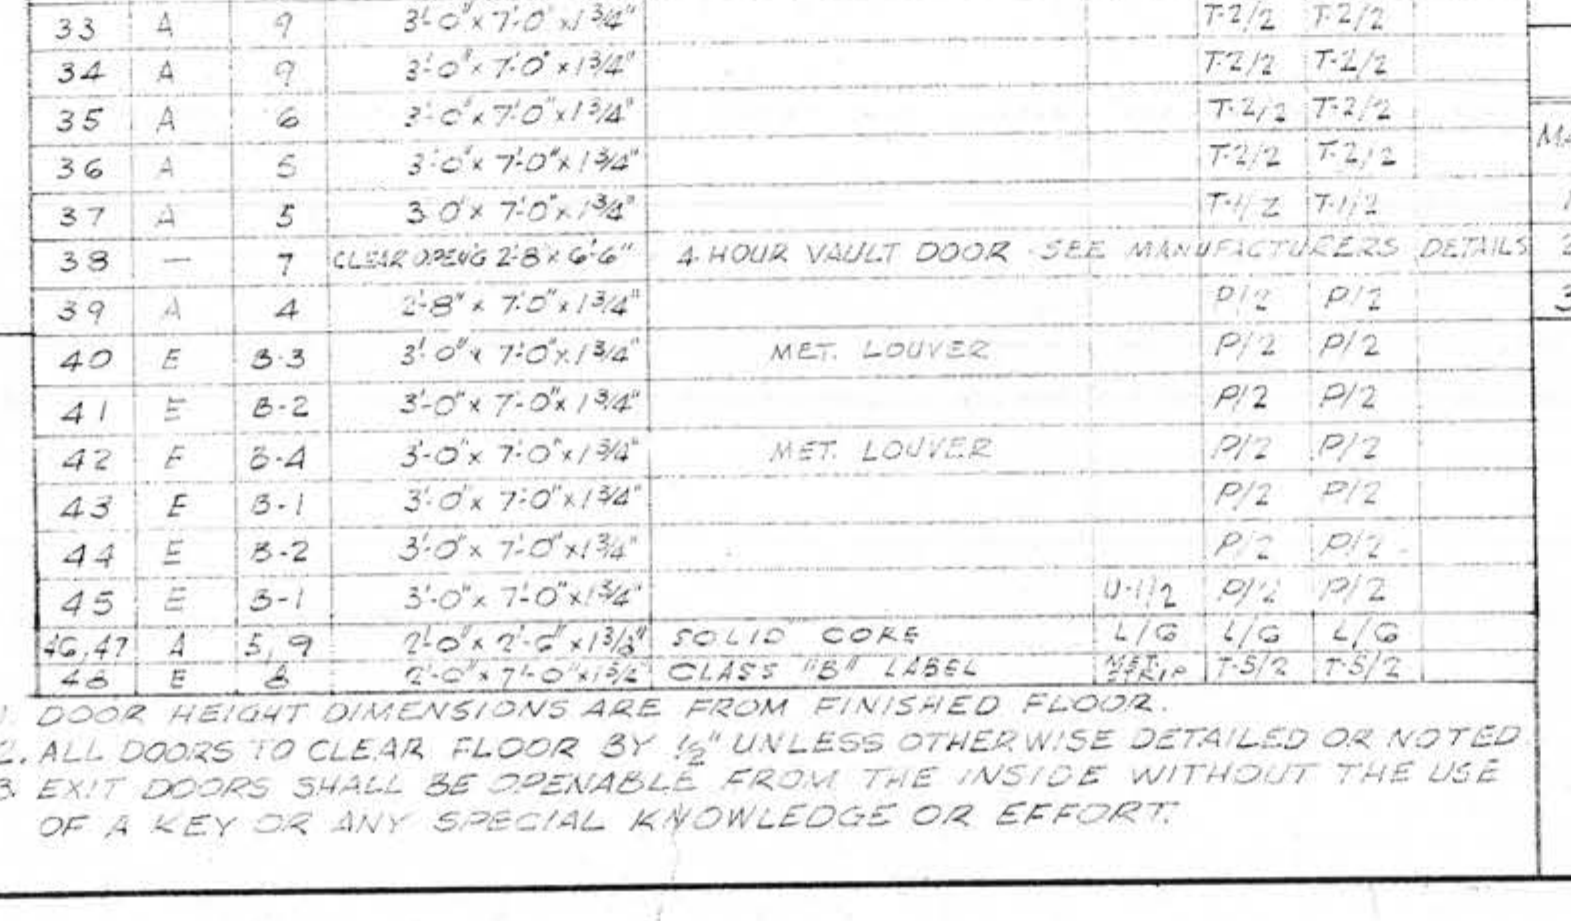 33 A 9 3'-0" x 7'-0" x 1 3/4" T-2/2 T-2/2
34 A 9 3'-0" x 7'-0" x 1 3/4" T-2/2 T-2/2
35 A 6 3'-0" x 7'-0" x 1 3/4" T-2/2 T-2/2
36 A 5 3'-0" x 7'-0" x 1 3/4" T-2/2 T-2/2
37 A 5 3'-0" x 7'-0" x 1 3/4" T-1/2 T-1/2
38 — 7 CLEAR OPEN'G 2'-8" x 6'-6" 4 HOUR VAULT DOOR - SEE MANUFACTURERS DETAILS 2
39 A 4 2'-8" x 7'-0" x 1 3/4" P/2 P/2 3
40 E B-3 3'-0" x 7'-0" x 1 3/4" MET. LOUVER P/2 P/2
41 E B-2 3'-0" x 7'-0" x 1 3/4" P/2 P/2
42 E B-4 3'-0" x 7'-0" x 1 3/4" MET. LOUVER P/2 P/2
43 E B-1 3'-0" x 7'-0" x 1 3/4" P/2 P/2
44 E B-2 3'-0" x 7'-0" x 1 3/4" P/2 P/2
45 E B-1 3'-0" x 7'-0" x 1 3/4" U-1/2 P/2 P/2
46,47 A 5, 9 2'-0" x 2'-6" SOLID CORE L/G L/G L/G
48 E 8 2'-0" x 7'-0" x 1 3/4" CLASS "B" LABEL MET. STRIP T-5/2 T-5/2
1. DOOR HEIGHT DIMENSIONS ARE FROM FINISHED FLOOR.
2. ALL DOORS TO CLEAR FLOOR BY 1/2" UNLESS OTHERWISE DETAILED OR NOTED
3. EXIT DOORS SHALL BE OPENABLE FROM THE INSIDE WITHOUT THE USE
OF A KEY OR ANY SPECIAL KNOWLEDGE OR EFFORT.